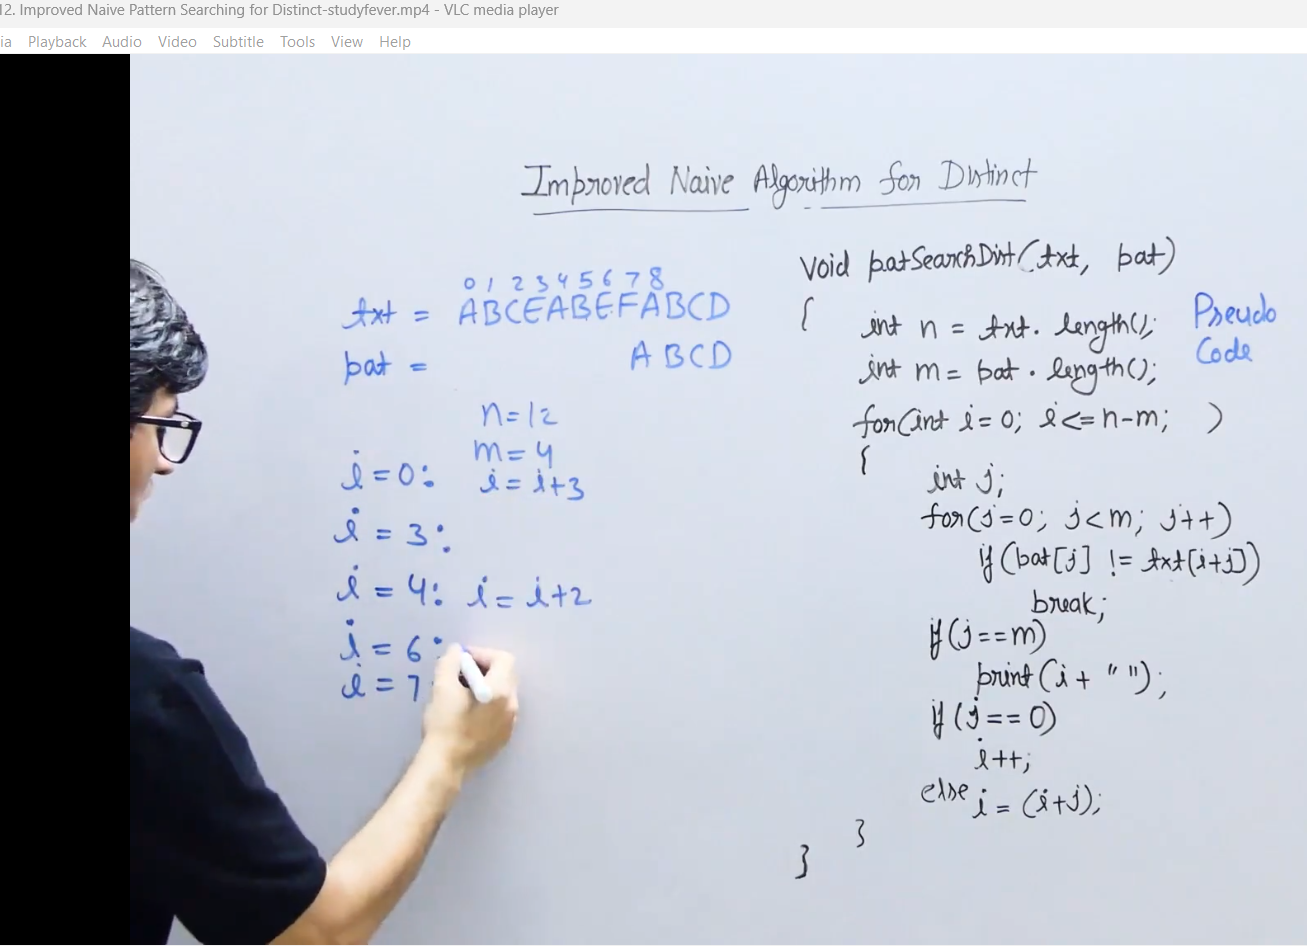 12. Improved Naive Pattern Searching for Distinct-studyfever.mp4 - VLC media player
ia Playback Audio Video Subtitle Tools View Help
Improved Naive Algorithm for Distinct
0 1 2 3 4 5 6 7 8
txt = ABCEABEFABCD
pat = ABCD
n=12
m=4
i=0: i=i+3
i=3:
i=4: i=i+2
i=6:
i=7
void patSearchDist(txt, pat)
{
int n = txt.length();
int m = pat.length();
Pseudo
Code
for(int i=0; i<=n-m; )
{
int j;
for(j=0; j<m; j++)
if(pat[j] != txt[i+j])
break;
if(j==m)
print(i+" ");
if(j==0)
i++;
else i=(i+j);
}
}